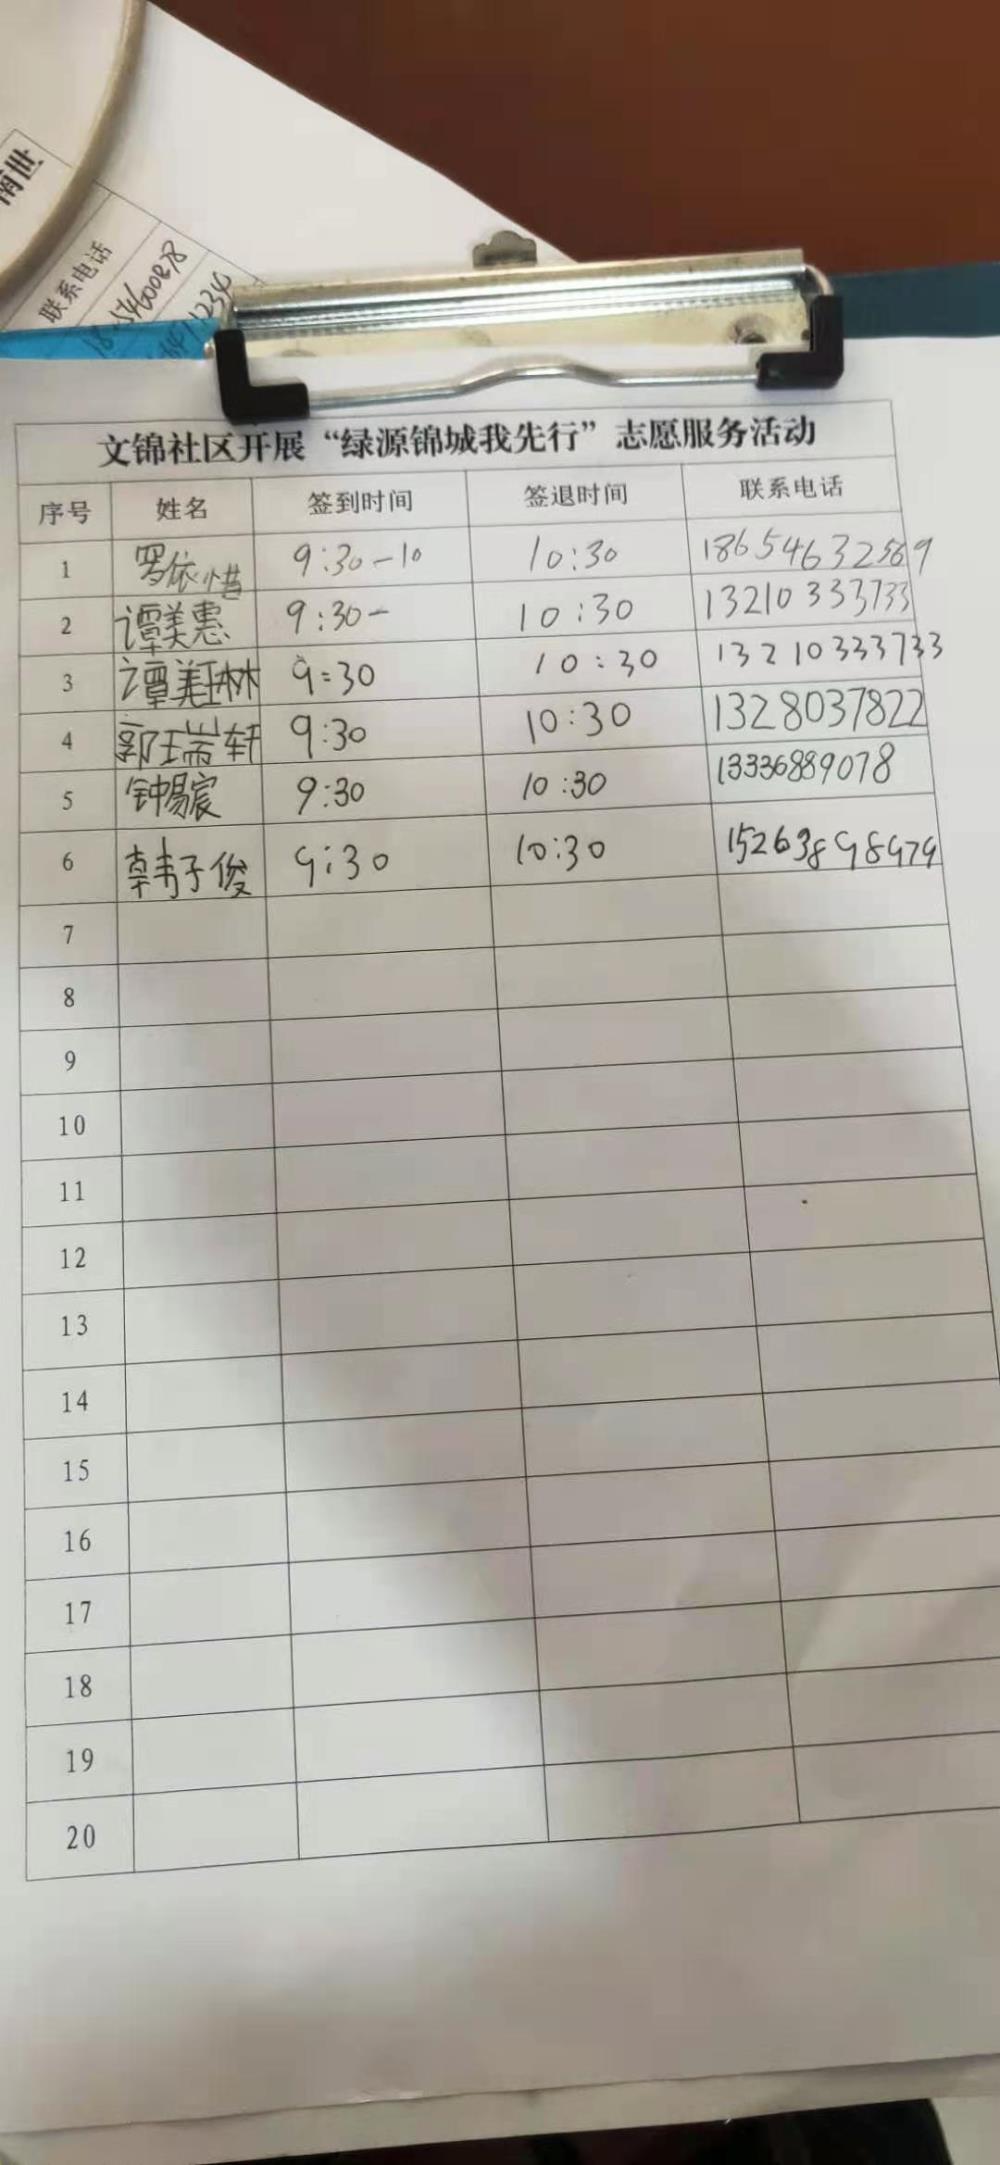 联系电话
文锦社区开展“绿源锦城我先行”志愿服务活动
序号 姓名 签到时间 签退时间 联系电话
1 罗依惜 9:30-10 10:30 18654632569
2 谭美惠 9:30- 10:30 13210333733
3 谭美琳 9:30 10:30 13210333733
4 郭瑞轩 9:30 10:30 1328037822
5 钟易宸 9:30 10:30 13336889078
6 韩子俊 9:30 10:30 15263898979
7
8
9
10
11
12
13
14
15
16
17
18
19
20